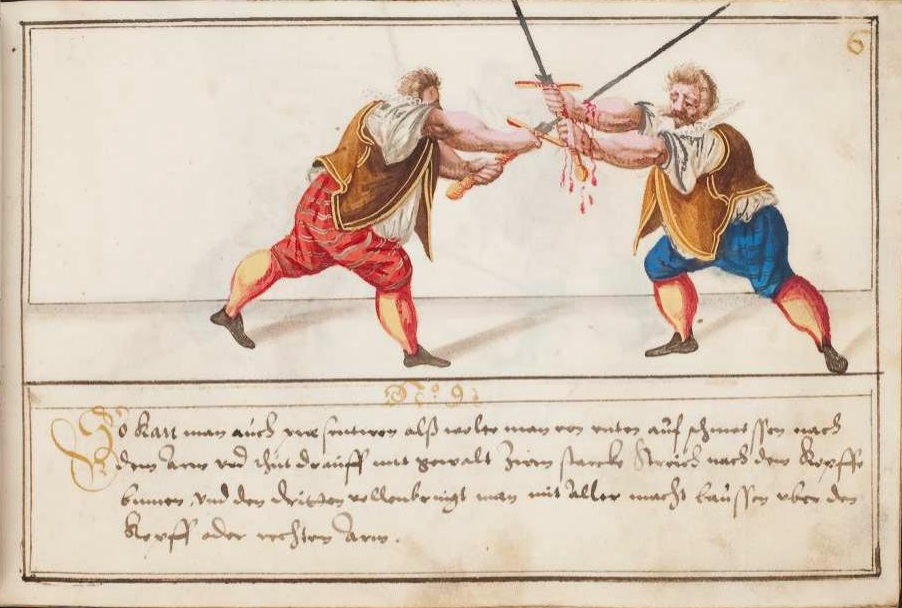 6
No: 9:
So kan man auch præsentiren alß wolte man von vnten auf schmeissen nach
dem Arm vnd thut drauff mit gewalt Zwen starcke Streich nach dem Kopffe
binnen, vnd den dritten vollenbringt man mit aller macht baussen vber den
Kopff oder rechten Arm.